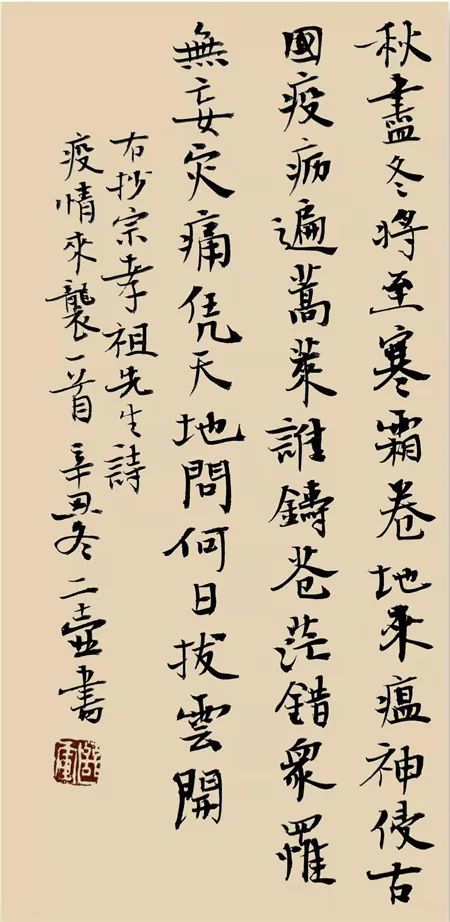 秋盡冬將至寒霜卷地來瘟神侵古
國疫疬遍蒿萊誰鑄苍茫錯衆罹
無妄灾痛凭天地問何日拔雲開
右抄宗孝祖先生詩
疫情來襲一首辛丑冬二壺書